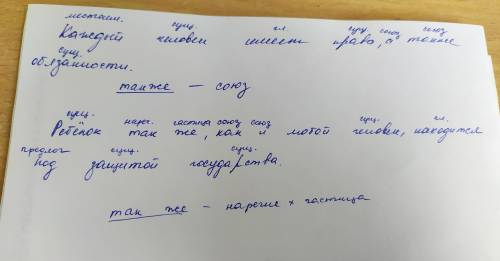 местоим. сущ. гл. сущ. союз союз
Каждый человек имеет право, а также
сущ.
обязанности.
также — союз
сущ. нареч. частица союз союз сущ. гл.
Ребёнок так же, как и любой человек, находится
предлог сущ. сущ.
под защитой государства.
так же — наречие + частица